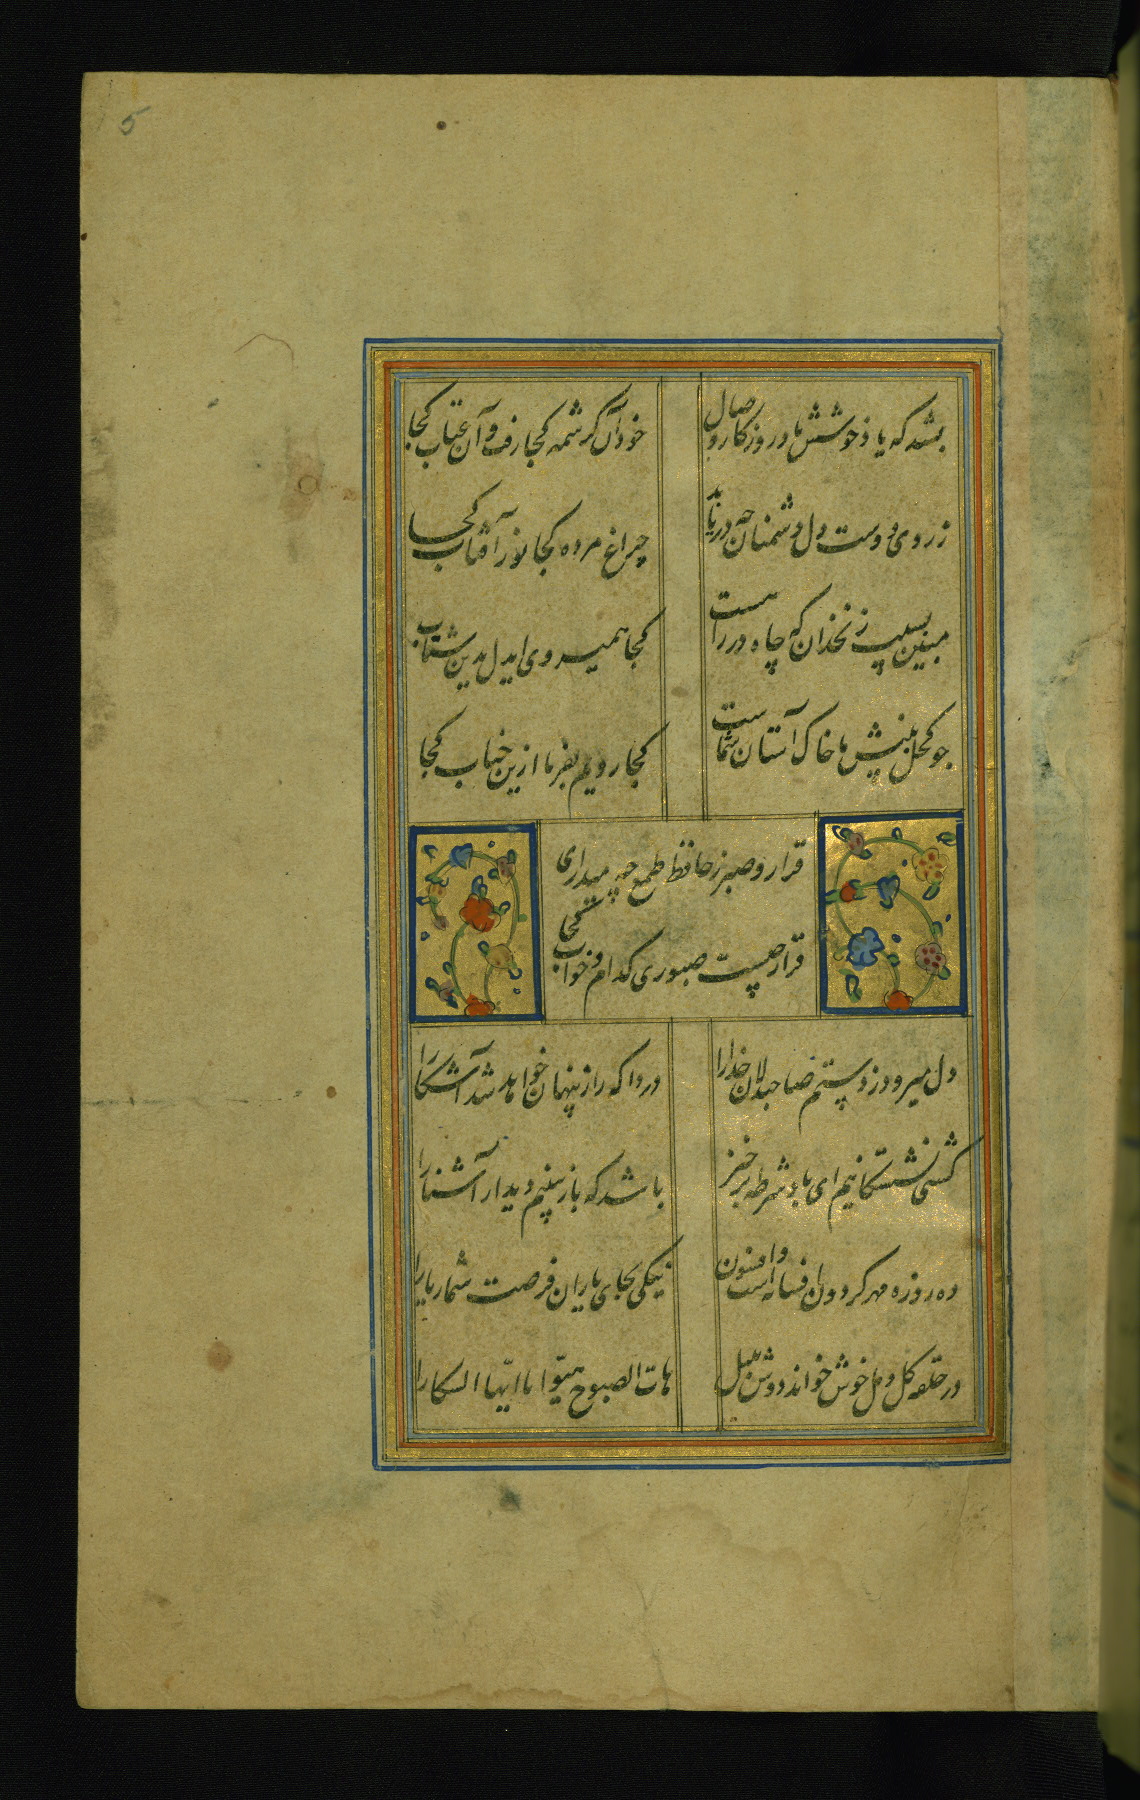 5
بشد که یاد خوشش باد روزکار وصال
خود آن کرشمه کجا رفت و آن عتاب کجا
ز روی دوست دل دشمنان چه دریابد
چراغ مرده کجا نور آفتاب کجا
مبین بسیب زنخدان که چاه در راهست
کجا همیروی ایدل بدین شتاب
جو کحل بینش ما خاک آستان شماست
کجا رویم بفرما ازین جناب کجا
قرار و صبر ز حافظ طمع چه میداری
قرار چیست صبوری کدام و خواب کجا
دل میرود ز دستم صاحبدلان خدا را
دردا که راز پنهان خواهد شد آشکارا
کشتی نشستکانیم ای باد شرطه برخیز
باشد که باز بینیم دیدار آشنا را
ده روزه مهر کردون افسانه است و افسون
نیکی بجای یاران فرصت شمار یارا
در حلقه کل و مل خوش خواند دوش بلبل
هات الصبوح هبّوا یا ایّها السکارا